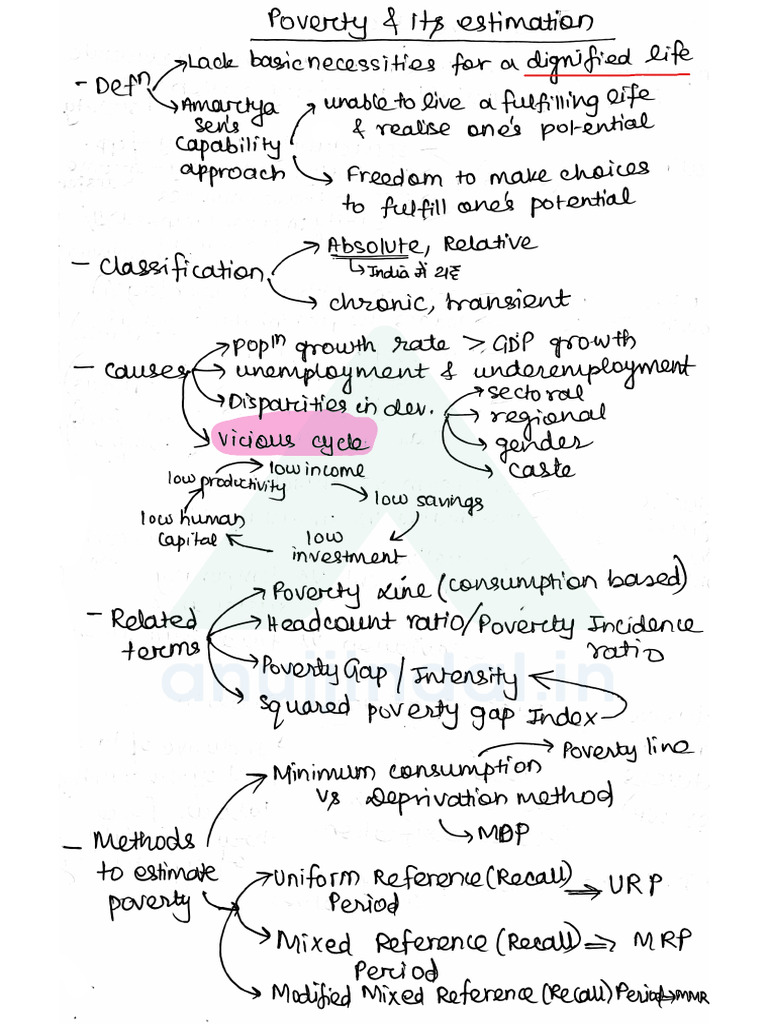 Poverty & its estimation
- Defⁿ
Lack basic necessities for a dignified life
Amartya
Sen's
Capability
approach
unable to live a fulfilling life
& realise one's potential
Freedom to make choices
to fulfill one's potential
- Classification
Absolute, Relative
India में
chronic, transient
- Causes
popⁿ growth rate > GDP growth
unemployment & underemployment
Disparities in dev.
sectoral
regional
gender
caste
Vicious cycle
low productivity
low income
low savings
low
investment
low human
Capital
- Related
terms
Poverty Line (consumption based)
Headcount ratio/Poverty Incidence
ratio
Poverty Gap / Intensity
Squared poverty gap Index
anujjindal.in
- Methods
to estimate
poverty
Minimum consumption
vs Deprivation method
Poverty line
MDP
Uniform Reference (Recall)
Period
=> URP
Mixed Reference (Recall)
Period
=> MRP
Modified Mixed Reference (Recall) Period → MMR